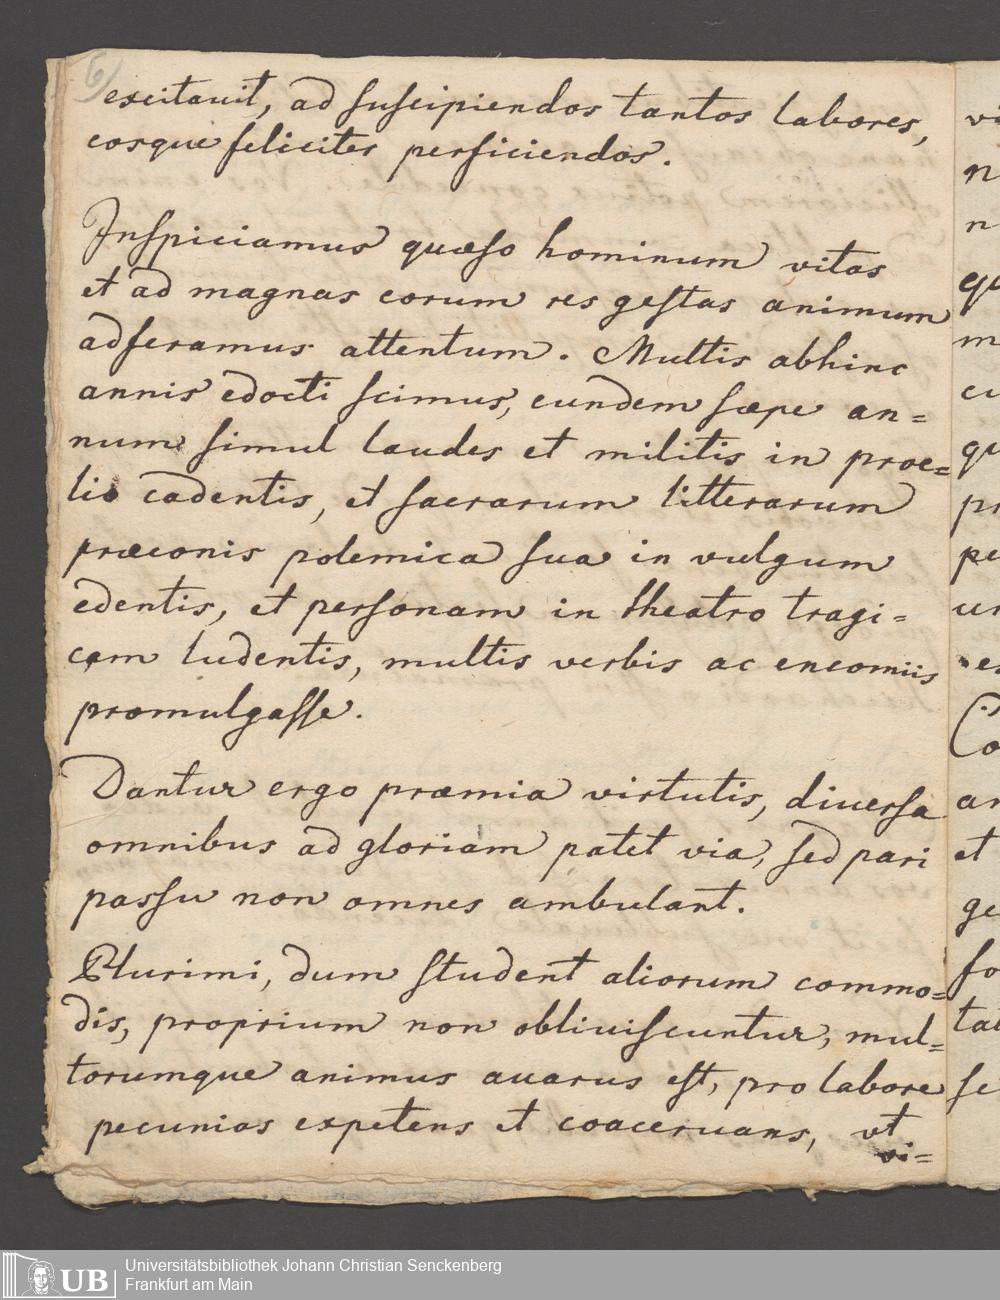 6)
excitauit, ad suscipiendos tantos labores,
eosque feliciter perficiendos.
Inspiciamus quæso hominum vitas
et ad magnas eorum res gestas animum
adferamus attentum. Multis abhinc
annis edocti scimus, eundem sæpe an=
num simul laudes et militis in proe=
lio cadentis, et sacrarum litterarum
præconis polemica sua in vulgum
edentis, et personam in theatro tragi=
cam ludentis, multis verbis ac encomiis
promulgasse.
Dantur ergo præmia virtutis, diuersa
omnibus ad gloriam patet via, sed pari
passu non omnes ambulant.
Plurimi, dum student aliorum commo=
dis, proprium non obliuiscuntur, mul=
torumque animus auarus est, pro labore
pecunias expetens et coaceruans, vt
vi=
Universitätsbibliothek Johann Christian Senckenberg
UB Frankfurt am Main